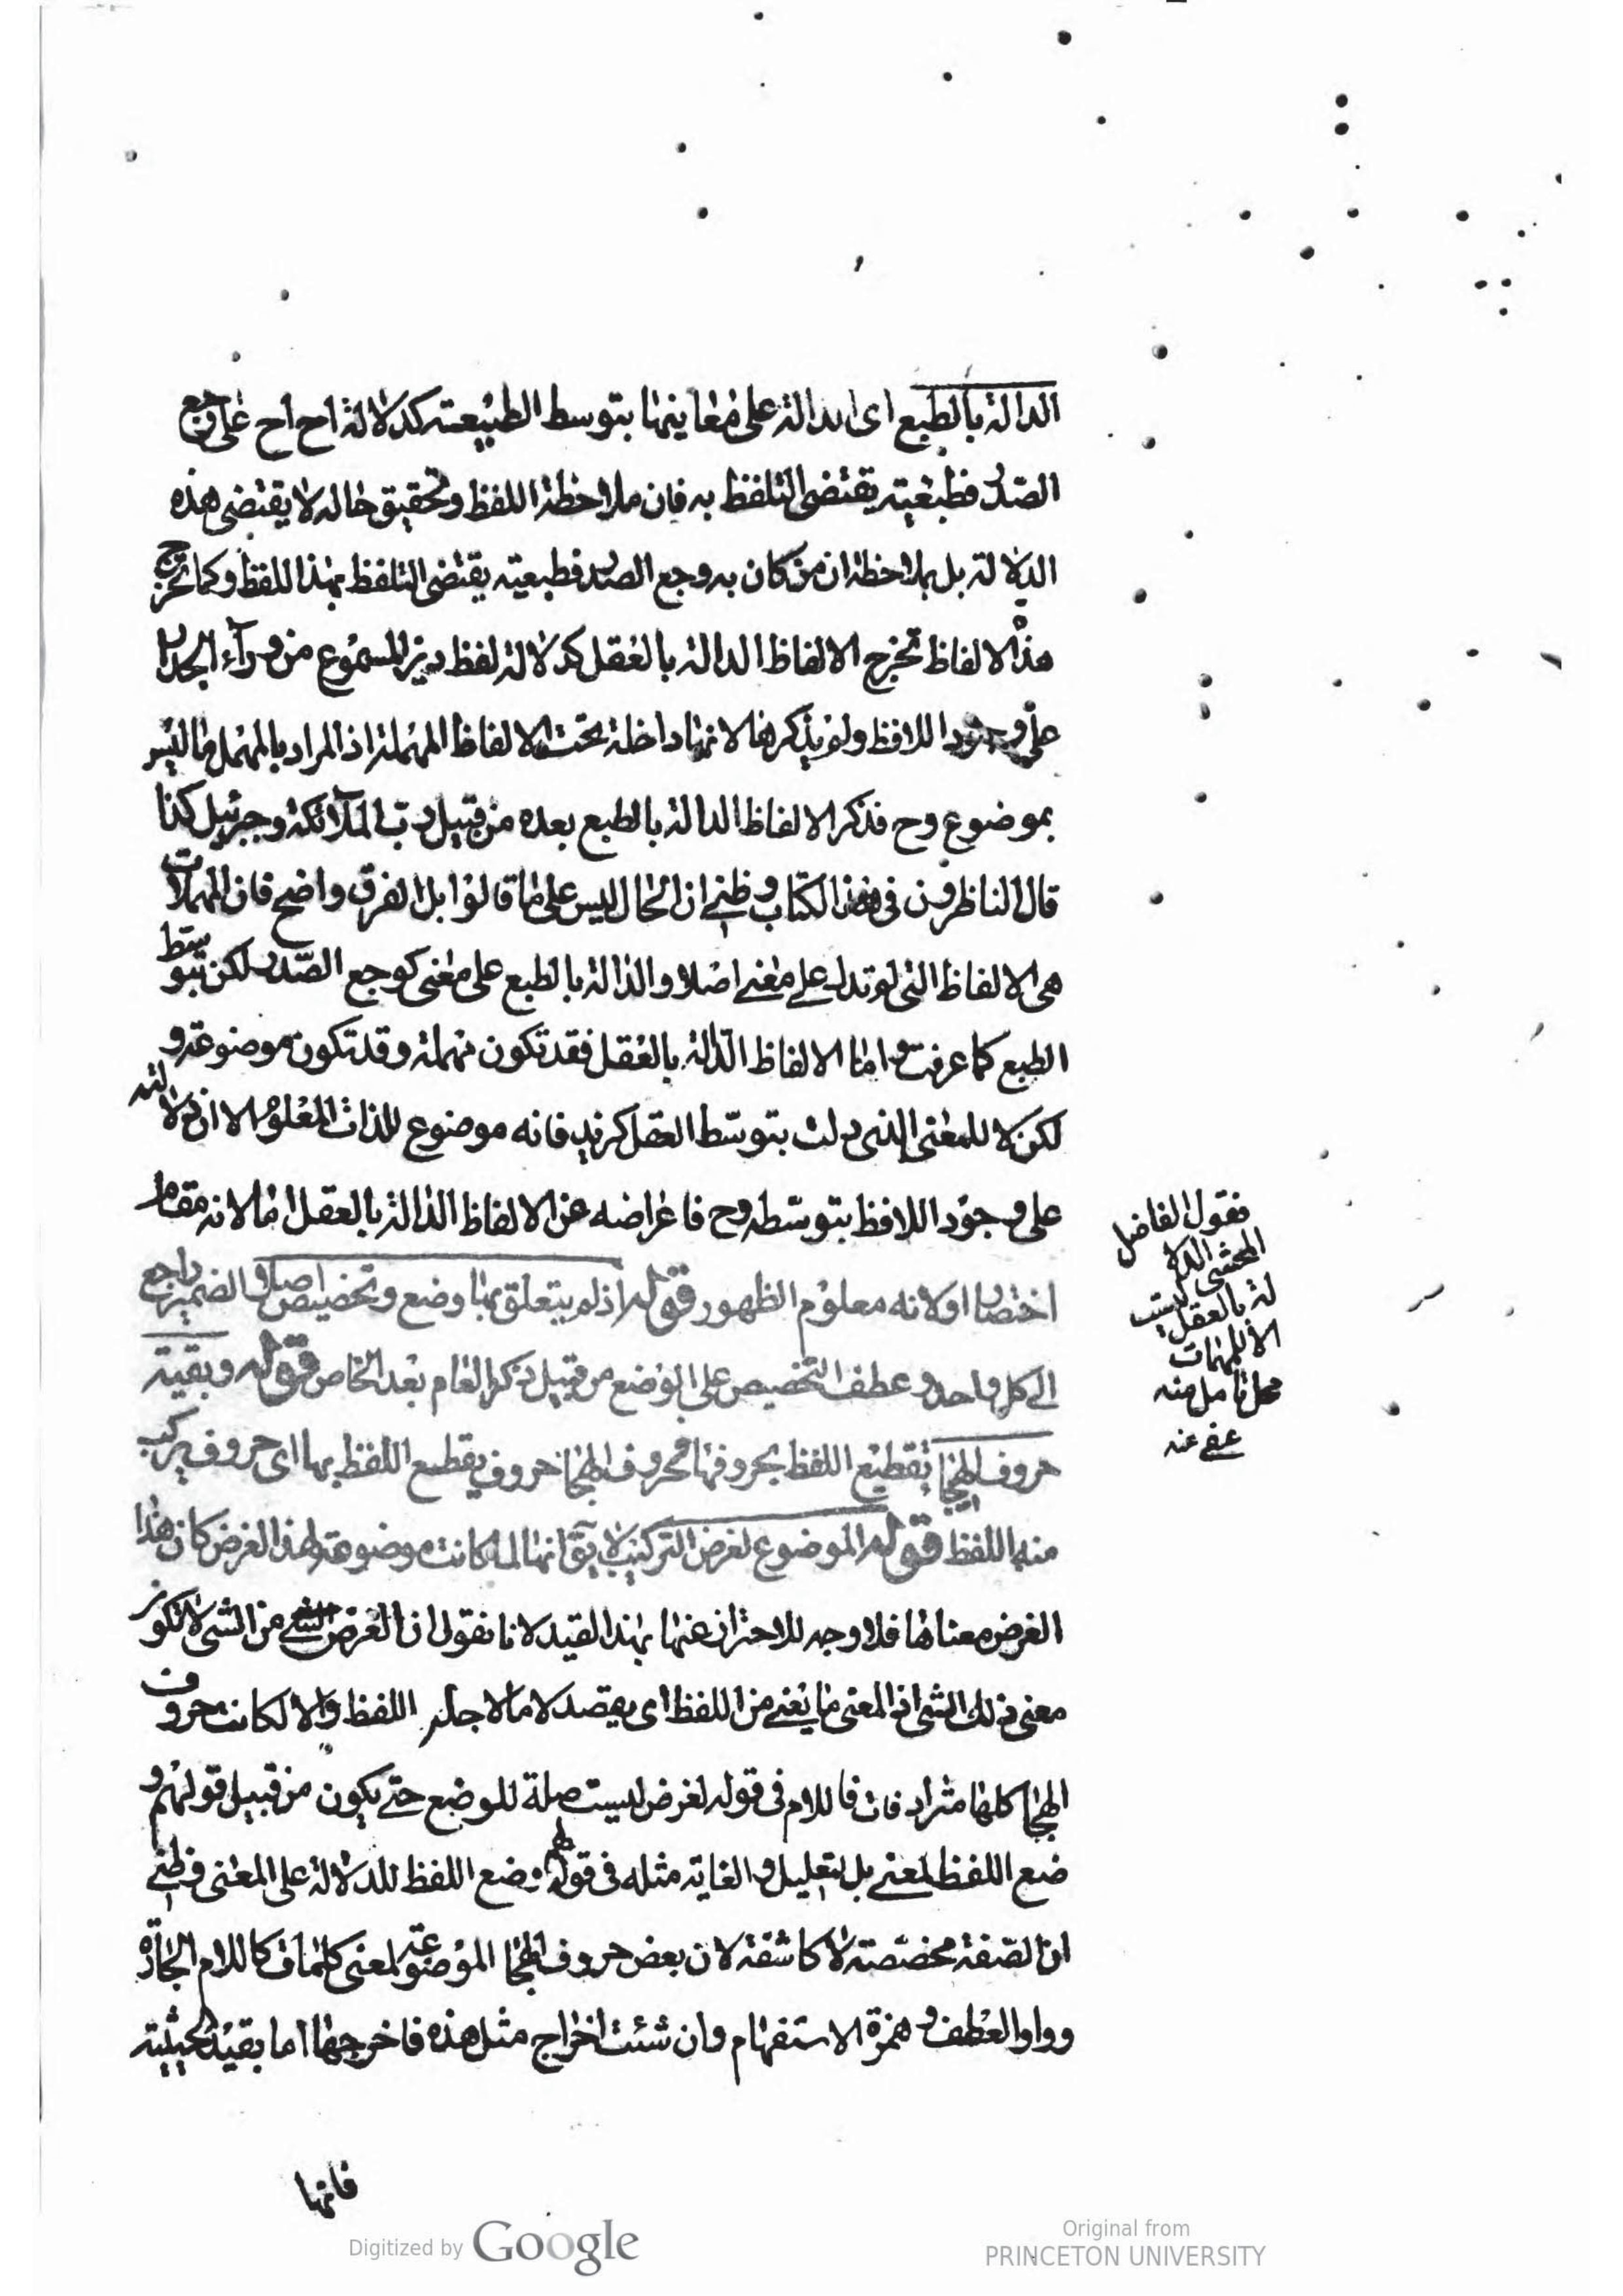 الدالة بالطبع اى الدالة على معانيها بتوسط الطبيعة كدلالة اح اح على وجع
الصدر فطبيعته يقتضى التلفظ به فان ملاحظة اللفظ وتحقيق حاله لا يقتضى هذه
الدلالة بل بملاحظة ان من كان به وجع الصدر فطبيعته يقتضى التلفظ بهذا اللفظ وكما تخرج
هذه الالفاظ تخرج الالفاظ الدالة بالعقل كدلالة لفظ ديز المسموع من ورآء الجدار
على وجود اللافظ ولم يذكرها لانها داخلة تحت الالفاظ المهملة اذ المراد بالمهمل ما ليس
بموضوع وح فذكر الالفاظ الدالة بالطبع بعده من قبيل رب الملآئكة وجبرئيل كذا
قال الناظرون فى هذا الكتاب وظنى ان الحال ليس على ما قالوا بل الفرق واضح فان المهملات
هى الالفاظ التى لم تدل على معنى اصلا والدالة بالطبع على معنى كوجع الصدر لكن بتوسط
الطبع كما عرفت واما الالفاظ الدالة بالعقل فقد تكون مهملة وقد تكون موضوعة و
لكن لا للمعنى الذى دلت بتوسط العقل كزيد فانه موضوع للذات المعلوم الا ان دلالته
على وجود اللافظ بتوسطه وح فاعراضه عن الالفاظ الدالة بالعقل اما لانه مقام
اختصار او لانه معلوم الظهور قوله اذ لم يتعلق بها وضع وتخصيص اصلا والضمير راجع
الى كل واحد وعطف التخصيص على الوضع من قبيل ذكر العام بعد الخاص قوله وبقيت
حروف الهجا تقطيع اللفظ بحروفها فحروف الهجا حروف يقطع اللفظ بها اى حروف يركب
منها اللفظ قوله الموضوع لغرض التركيب لا يق انها لما كانت موضوعة لهذا الغرض كان هذا
الغرض معناها فلا وجه للاحتراز عنها بهذا القيد لانا نقول ان الغرض من الشى لا تكون
معنى ذلك الشى اذ المعنى ما يعنى من اللفظ اى يقصد لا ما لاجله اللفظ والا لكانت حروف
الهجا كلها مترادفات فاللام فى قوله لغرض ليست صلة للوضع حتى يكون من قبيل قولهم و
ضع اللفظ لمعنى بل لتعليل والغاية مثله فى قولهم وضع اللفظ للدلالة على المعنى فظنى
ان الصفة مخصصته لا كاشفة لان بعض حروف الهجا الموضوعة لمعنى كلمات كاللام الجارة
وواو العطف وهمزة الاستفهام وان شئت اخراج مثل هذه فاخرجها اما بقيد الحيثية
فانها
فقول الفاضل
المحشى الدلا
لة بالعقل ليست
الا للمهمات
محل تامل منه
عفى عنه
Digitized by Google
Original from
PRINCETON UNIVERSITY